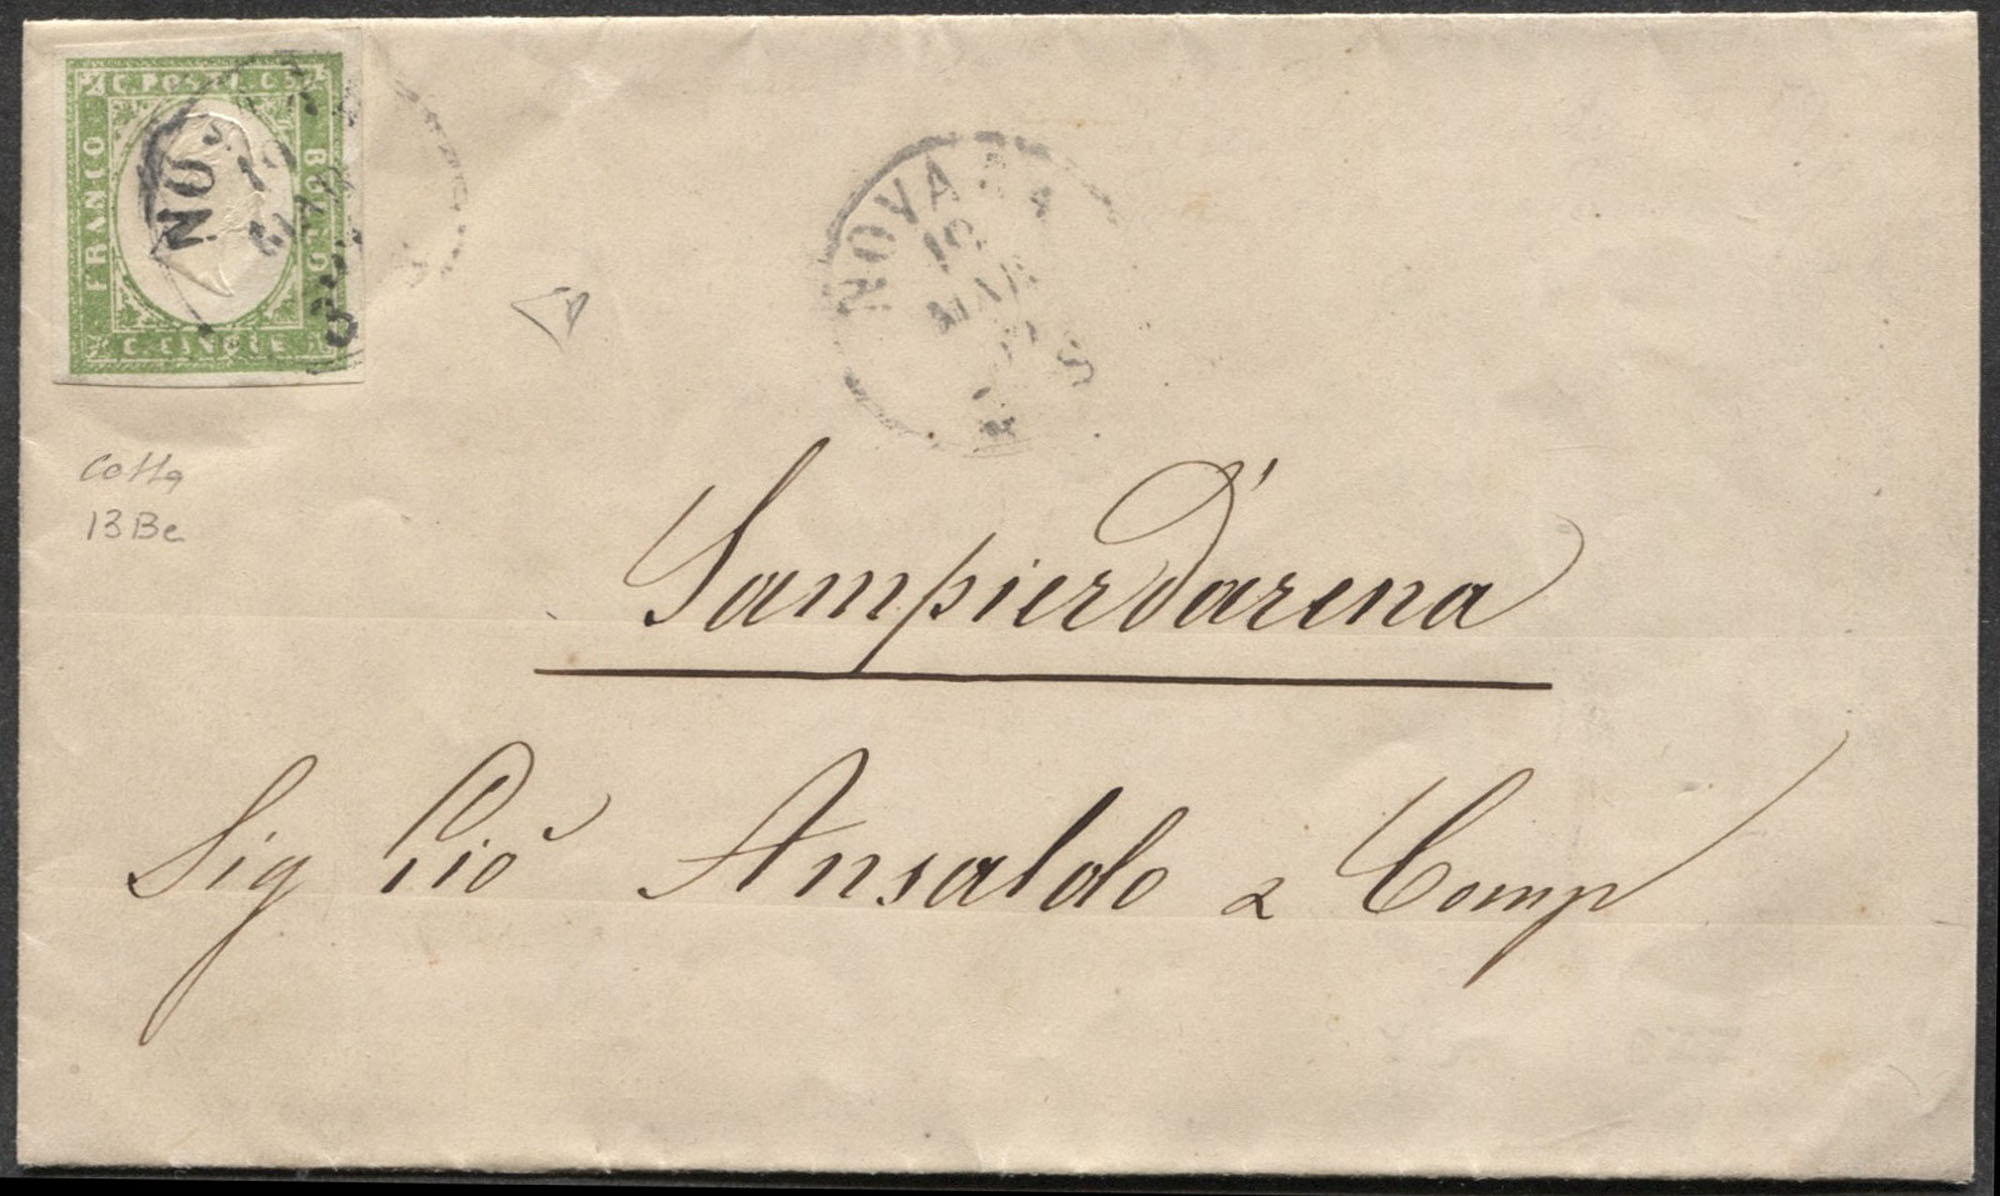 C. POSTE C 5
FRANCO
BOLLO
C. CINQUE
NOVARA
19
MAR
Cotta
13Be
Sampierd'arena
Sig Gio Ansaldo & Comp